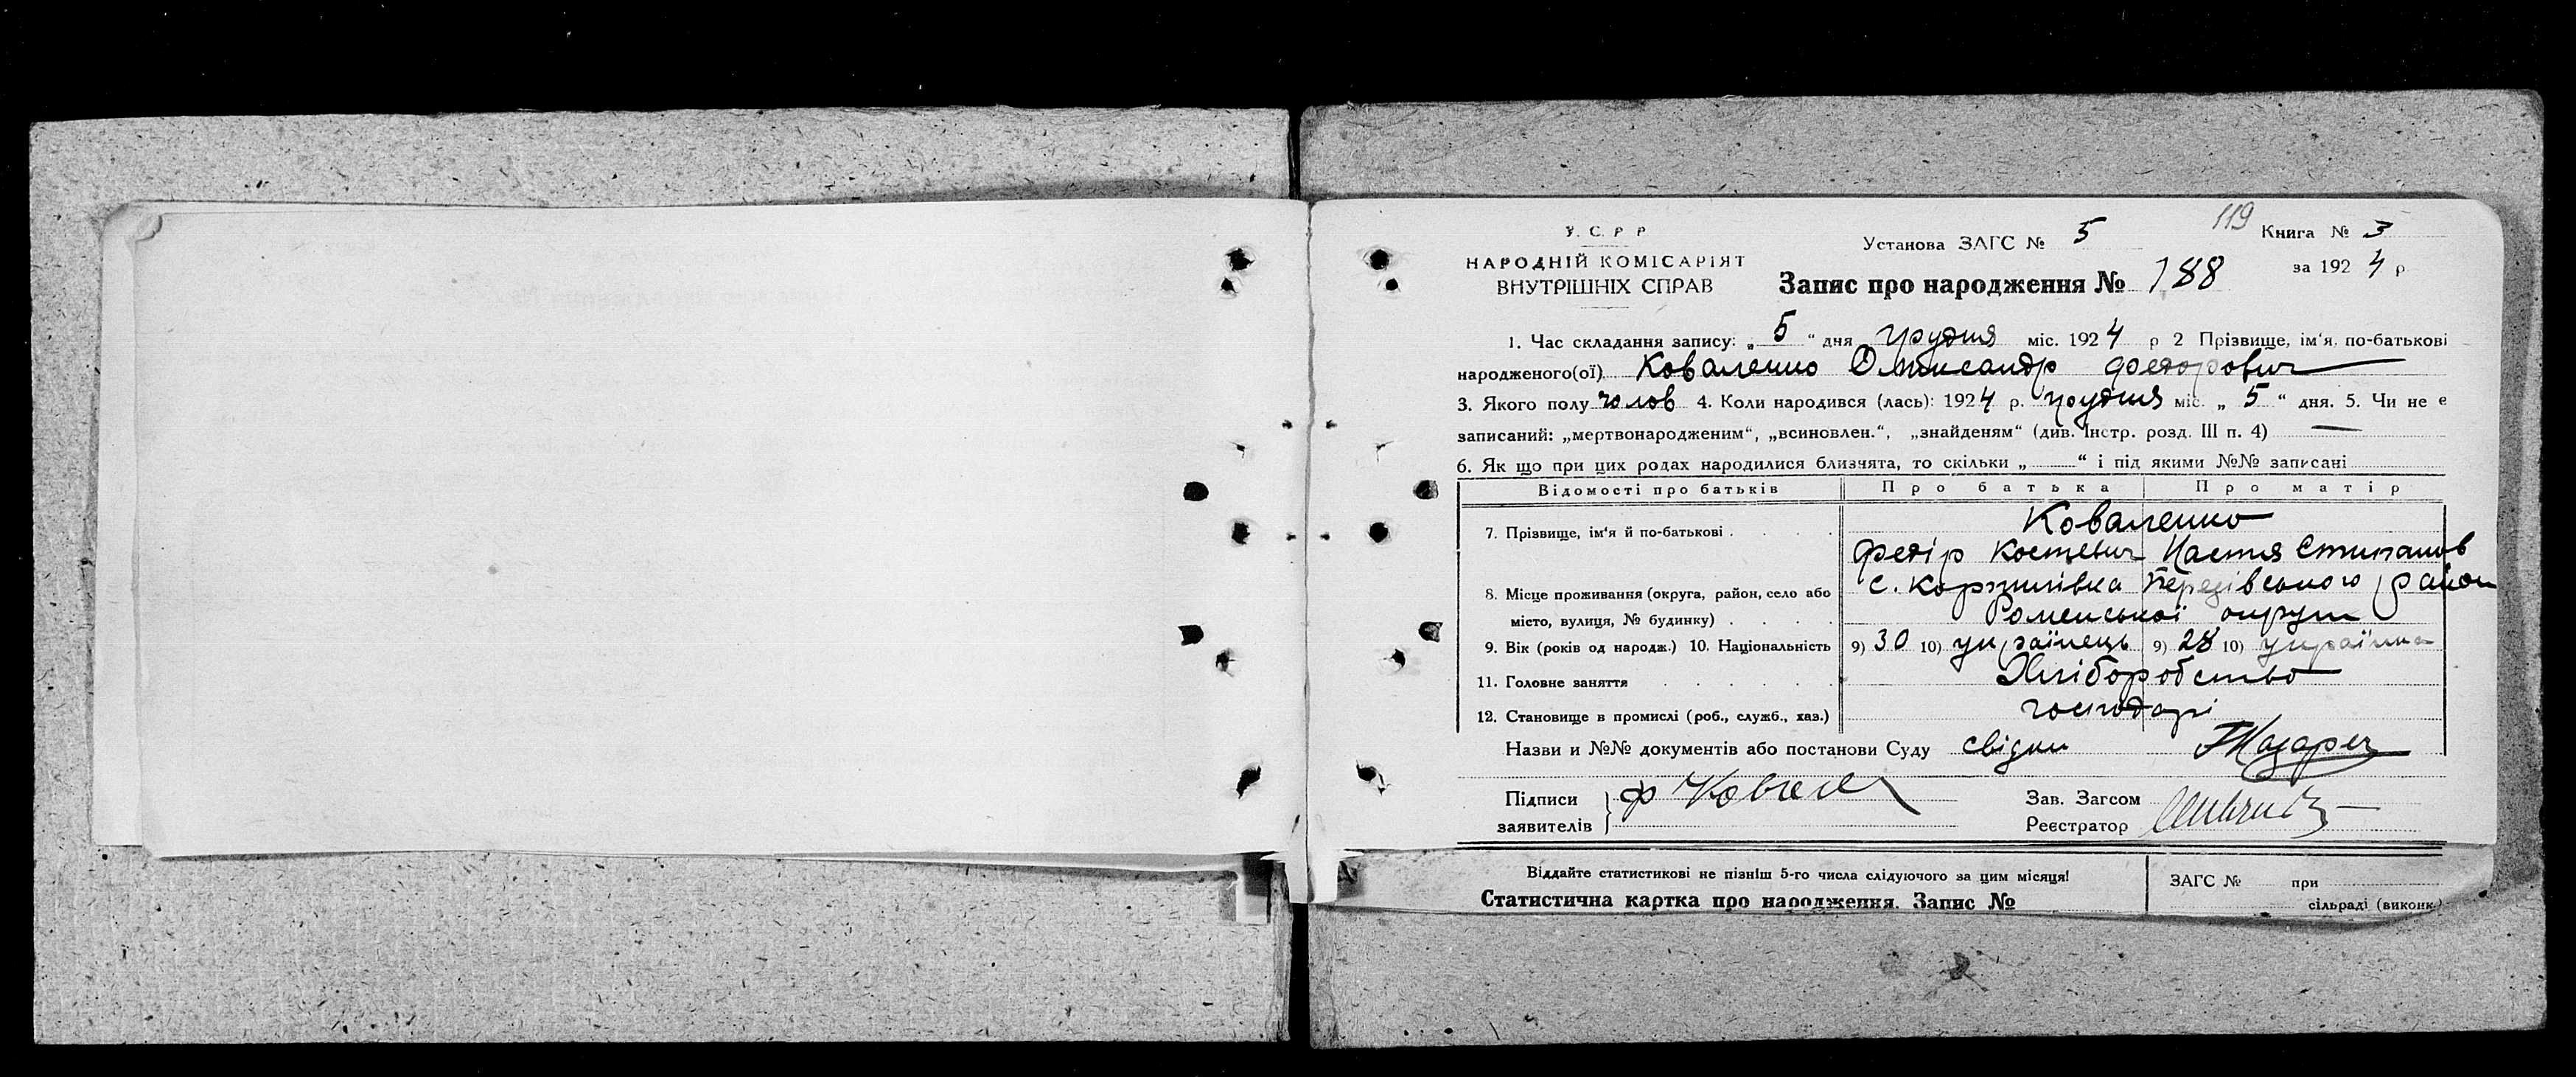 119
У. С. Р Р
НАРОДНІЙ КОМІСАРІЯТ
ВНУТРІШНІХ СПРАВ
Установа ЗАГС № 5
Книга № 3
за 1924 р
Запис про народження № 188
1. Час складання запису: „ 5 “ дня грудня міс. 1924 р 2 Прізвище, ім'я, по-батькові
народженого(ої) Коваленко Олександр Федорович
3. Якого полу чолов 4. Коли народився (лась): 1924 р. грудня міс. „ 5 “ дня. 5. Чи не є
записаний: „мертвонародженим“, „всиновлен.“, „знайденям“ (див. Інстр. розд. III п. 4) —
6. Як що при цих родах народилися близнята, то скільки „ “ і під якими №№ записані
Відомості про батьків Про батька Про матір
Коваленко
7. Прізвище, ім'я й по-батькові
Федір Костевич Настя Степанов
8. Місце проживання (округа, район, село або
місто, вулиця, № будинку)
с. Коржинівка район
Роменської округи
9. Вік (років од народж.) 10. Національність 9) 30 10) українець 9) 28 10) українка
11. Головне заняття Хліборобство
12. Становище в промислі (роб., служб., хаз.) господарі
Назви и №№ документів або постанови Суду свідки
Підписи
заявителів
Ф Ковал
Зав. Загсом
Реєстратор
Віддайте статистикові не пізніш 5-го числа слідуючого за цим місяця!
Статистична картка про народження. Запис №
ЗАГС № при
сільраді (виконк.)